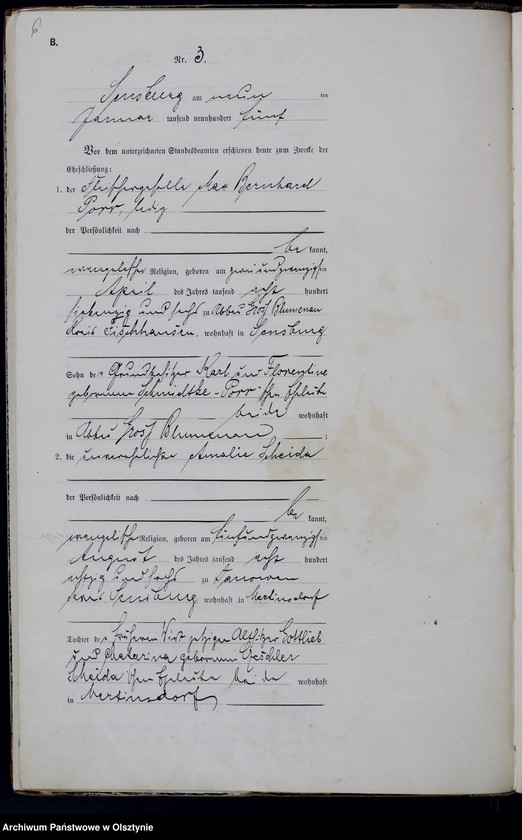 6
B.
Nr. 3.
Sensburg am neun ten
Januar tausend neunhundert fünf
Vor dem unterzeichneten Standesbeamten erschienen heute zum Zwecke der
Eheschließung:
1. der Fleischergeselle Max Bernhard
Porr, ledig
der Persönlichkeit nach
be kannt,
evangelischer Religion, geboren am zweiundzwanzigsten
April des Jahres tausend acht hundert
siebenzig und sechs zu Abbau Gross Blumenau
Kreis Fischhausen, wohnhaft in Sensburg
Sohn des Grundbesitzer Karl und Florentine
geborenen Schmidtke-Porr'schen Eheleute
beide wohnhaft
in Abbau Gross Blumenau ;
2. die unverehelichte Amalie Scheida
der Persönlichkeit nach
be kannt,
evangelischer Religion, geboren am fünfundzwanzigsten
August des Jahres tausend acht hundert
achtzig und sechs zu
Kreis Sensburg, wohnhaft in Mertinsdorf
Tochter des früheren Wirt jetzigen Altsitzer Gottlieb
und Catarina geborenen
Scheida'schen Eheleute beide wohnhaft
in Mertinsdorf
Archiwum Państwowe w Olsztynie